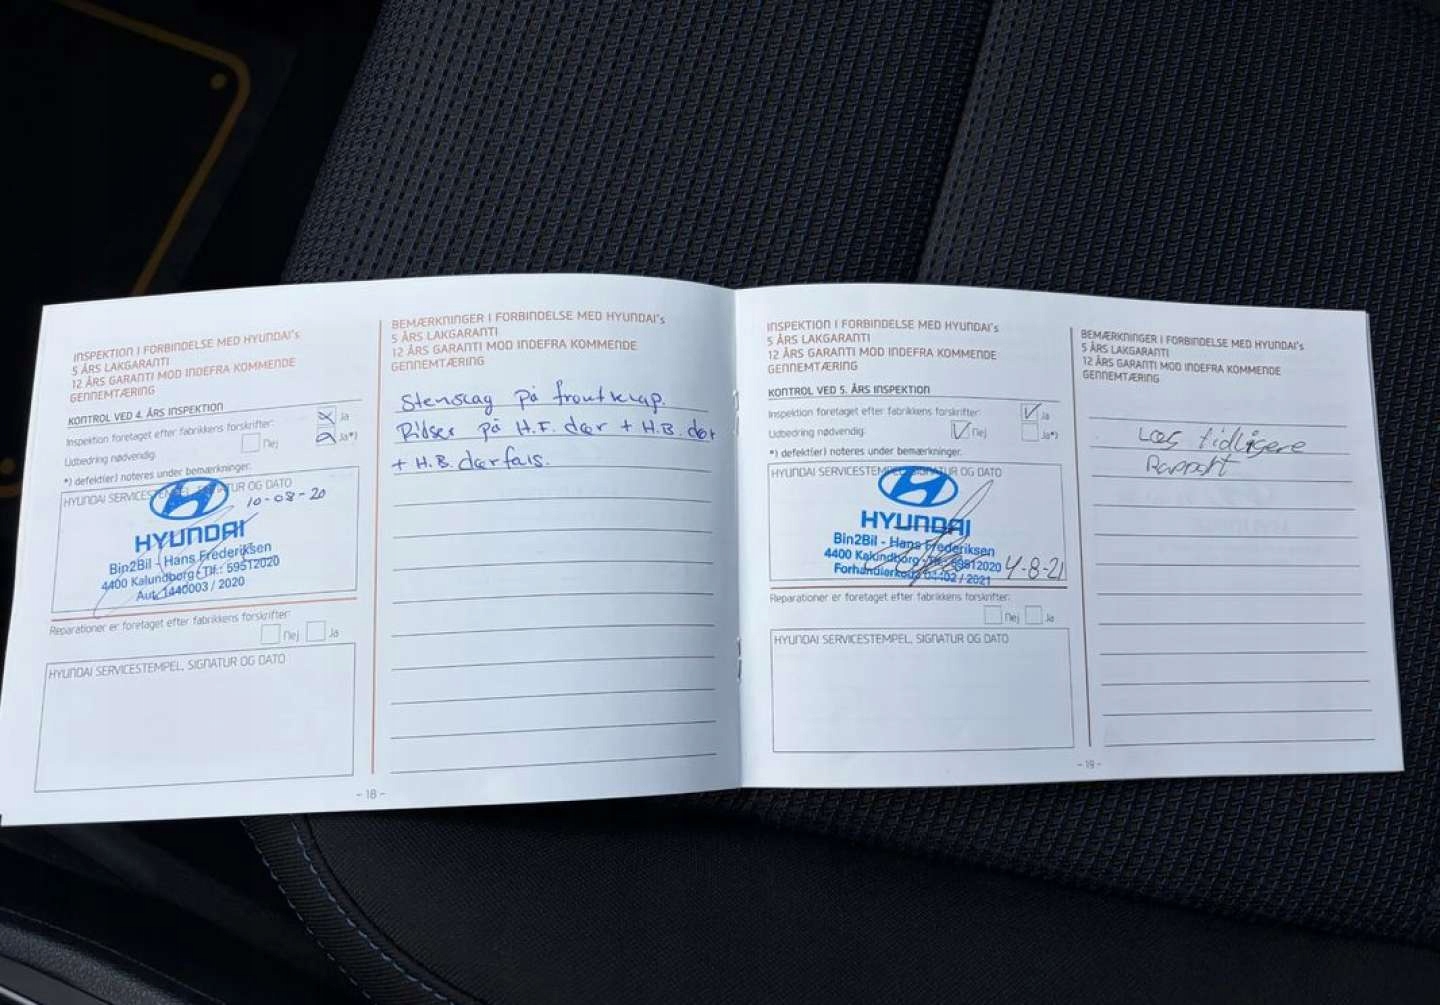 INSPEKTION I FORBINDELSE MED HYUNDAI's
5 ÅRS LAKGARANTI
12 ÅRS GARANTI MOD INDEFRA KOMMENDE
GENNEMTÆRING
KONTROL VED 4. ÅRS INSPEKTION
Inspektion foretaget efter fabrikkens forskrifter: Ja
Udbedring nødvendig: Nej Ja*)
*) defekt(er) noteres under bemærkninger.
HYUNDAI SERVICESTEMPEL, SIGNATUR OG DATO
10-08-20
HYUNDAI
Bin2Bil - Hans Frederiksen
4400 Kalundborg - Tlf.: 59512020
Aut. 1440003 / 2020
Reparationer er foretaget efter fabrikkens forskrifter:
Nej Ja
HYUNDAI SERVICESTEMPEL, SIGNATUR OG DATO
- 18 -
BEMÆRKNINGER I FORBINDELSE MED HYUNDAI's
5 ÅRS LAKGARANTI
12 ÅRS GARANTI MOD INDEFRA KOMMENDE
GENNEMTÆRING
Stenslag på frontklap.
Ridser på H.F. dør + H.B. dør
+ H.B. dørfals.
INSPEKTION I FORBINDELSE MED HYUNDAI's
5 ÅRS LAKGARANTI
12 ÅRS GARANTI MOD INDEFRA KOMMENDE
GENNEMTÆRING
KONTROL VED 5. ÅRS INSPEKTION
Inspektion foretaget efter fabrikkens forskrifter: Ja
Udbedring nødvendig: Nej Ja*)
*) defekt(er) noteres under bemærkninger.
HYUNDAI SERVICESTEMPEL, SIGNATUR OG DATO
HYUNDAI
Bin2Bil - Hans Frederiksen
4400 Kalundborg - Tlf.: 59512020
Forhandlerkode 04402 / 2021
4-8-21
Reparationer er foretaget efter fabrikkens forskrifter:
Nej Ja
HYUNDAI SERVICESTEMPEL, SIGNATUR OG DATO
BEMÆRKNINGER I FORBINDELSE MED HYUNDAI's
5 ÅRS LAKGARANTI
12 ÅRS GARANTI MOD INDEFRA KOMMENDE
GENNEMTÆRING
Læs tidligere
Rapport
- 19 -